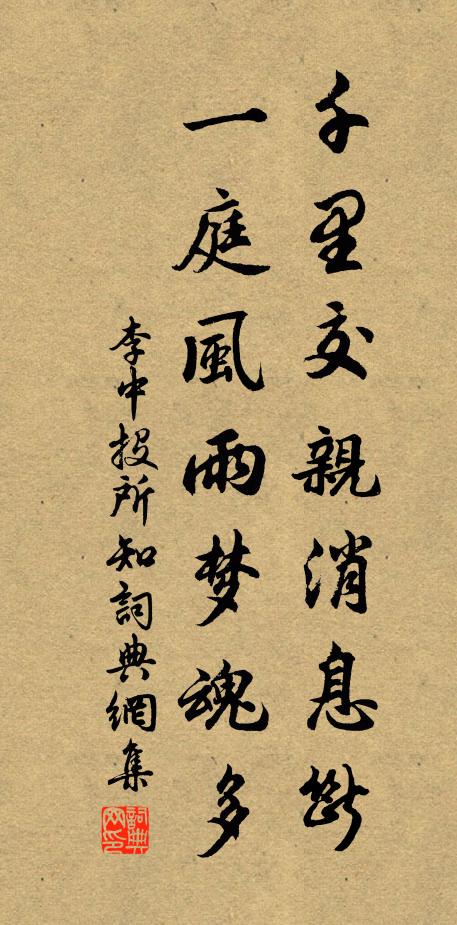 千里交親消息斷
一庭風雨梦魂多
李中投所知詞典網集
詞典网印